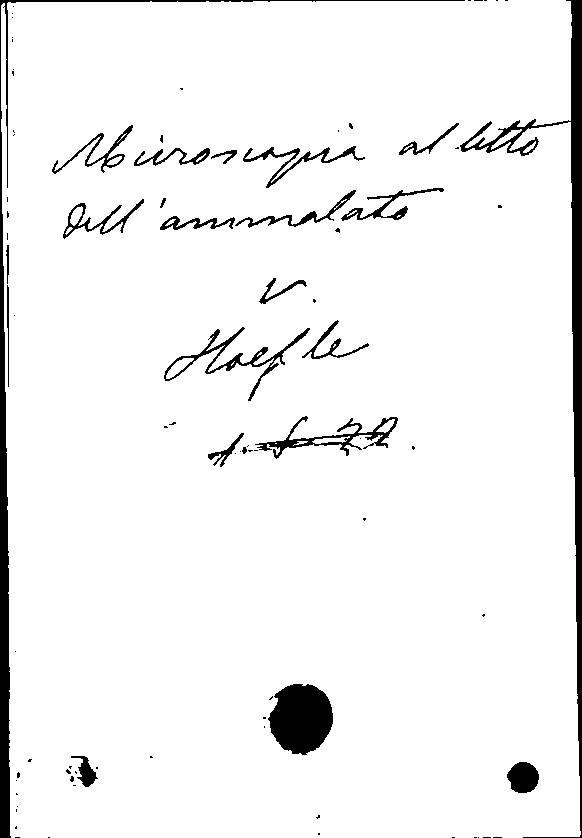 Microscopia al letto
dell'ammalato
V.
Hoefle